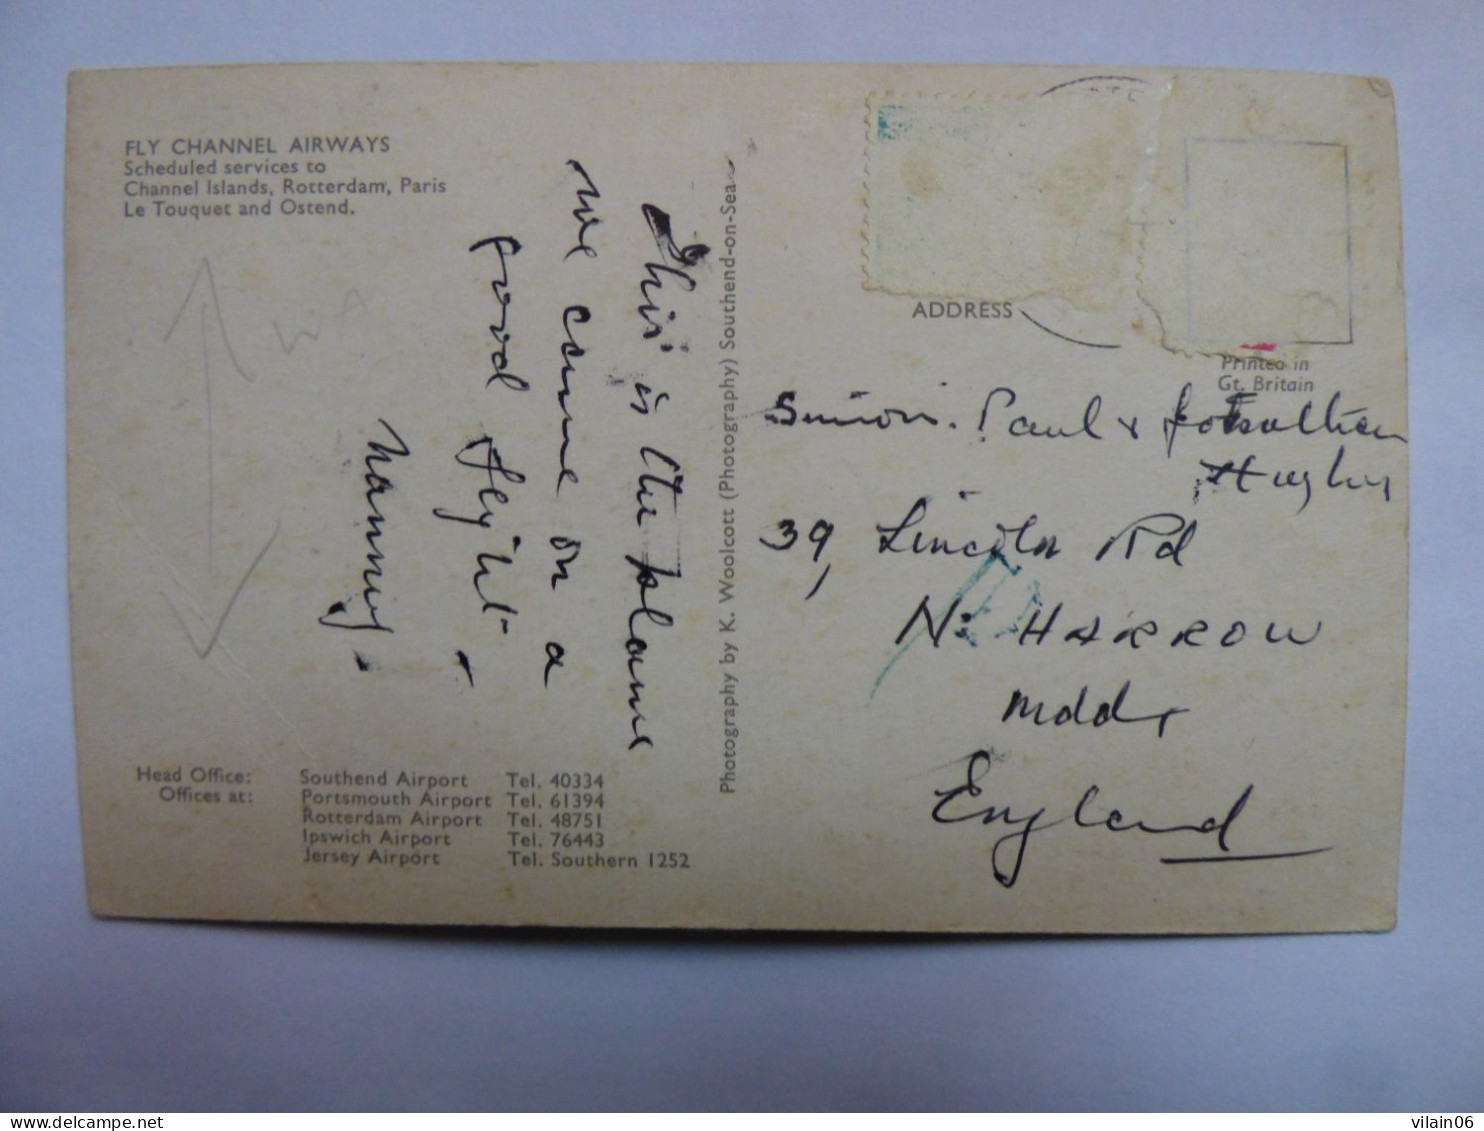 FLY CHANNEL AIRWAYS
Scheduled services to
Channel Islands, Rotterdam, Paris
Le Touquet and Ostend.
This is the plane
we came on a
good flight -
Nanny.
Head Office: Southend Airport Tel. 40334
Offices at: Portsmouth Airport Tel. 61394
Rotterdam Airport Tel. 48751
Ipswich Airport Tel. 76443
Jersey Airport Tel. Southern 1252
Photography by K. Woolcott (Photography) Southend-on-Sea
ADDRESS
Printed in
Gt. Britain
Simon. Paul & Johnathan
Hughes
39, Lincoln Rd
N. HARROW
Middx
England
vilain06